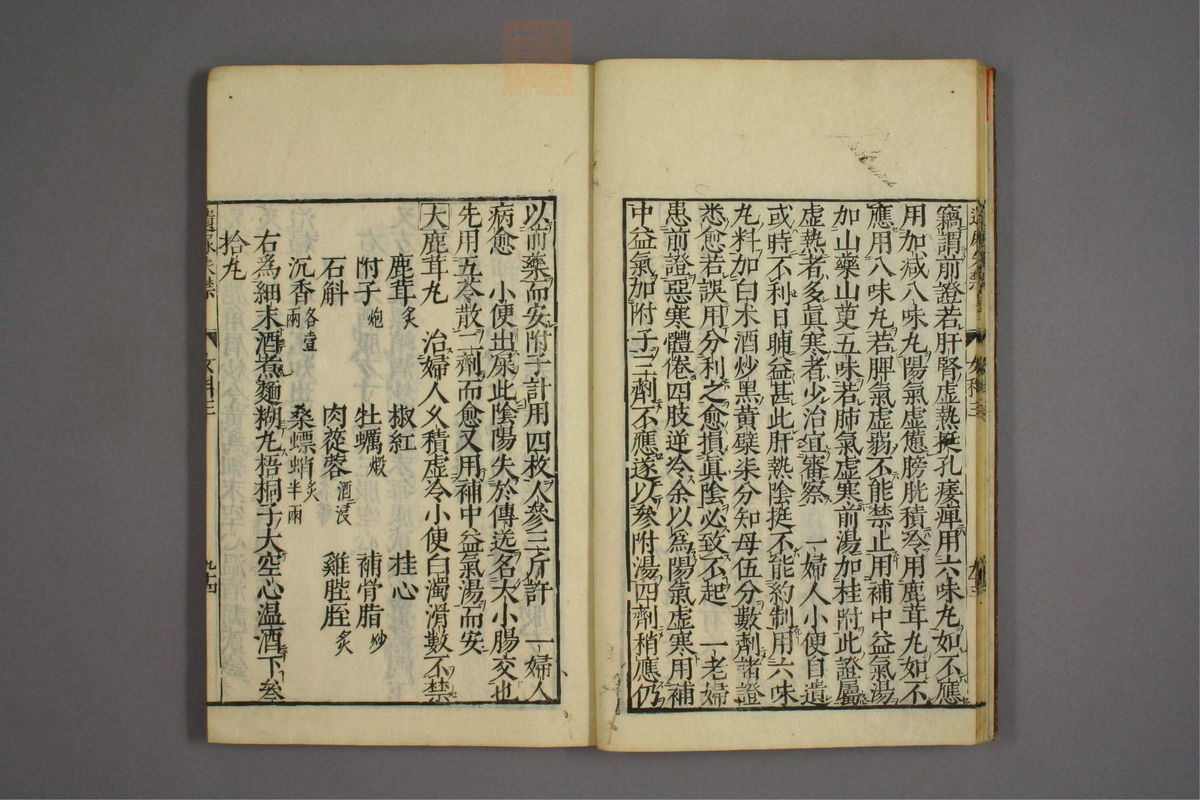 竊謂前證若肝腎虛熱挺孔痿痺用六味丸如不應
用加减八味丸陽氣虛憊膀胱積冷用鹿茸丸如不
應用八味丸若脾氣虛弱不能禁止用補中益氣湯
加山藥山茰五味若肺氣虛寒前湯加桂附此證屬
虛熱者多眞寒者少治宜審察　一婦人小便自遺
或時不利日晡益甚此肝熱陰挺不能約制用六味
丸料加白术酒炒黑黃蘗柒分知母伍分數劑諸證
悉愈若誤用分利之愈損眞陰必致不起　一老婦
患前證惡寒體倦四肢逆冷余以爲陽氣虛寒用補
中益氣加附子三劑不應遂以參附湯四劑稍應仍
女科三
以前藥而安附子計用四枚人參三斤許　一婦人
病愈　小便出屎此陰陽失於傳送名大小腸交也
先用五苓散二劑而愈又用補中益氣湯而安
大鹿茸丸　治婦人久積虛冷小便白濁滑數不禁
鹿茸炙　椒紅　桂心
附子炮　牡蠣煅　補骨脂炒
石斛　肉蓯蓉酒浸　雞膍胵炙
沉香各壹兩　桑螵蛸炙半兩
右爲細末酒煮麵糊丸梧桐子大空心温酒下叁
拾丸
遺尿失禁　女科三　九十四